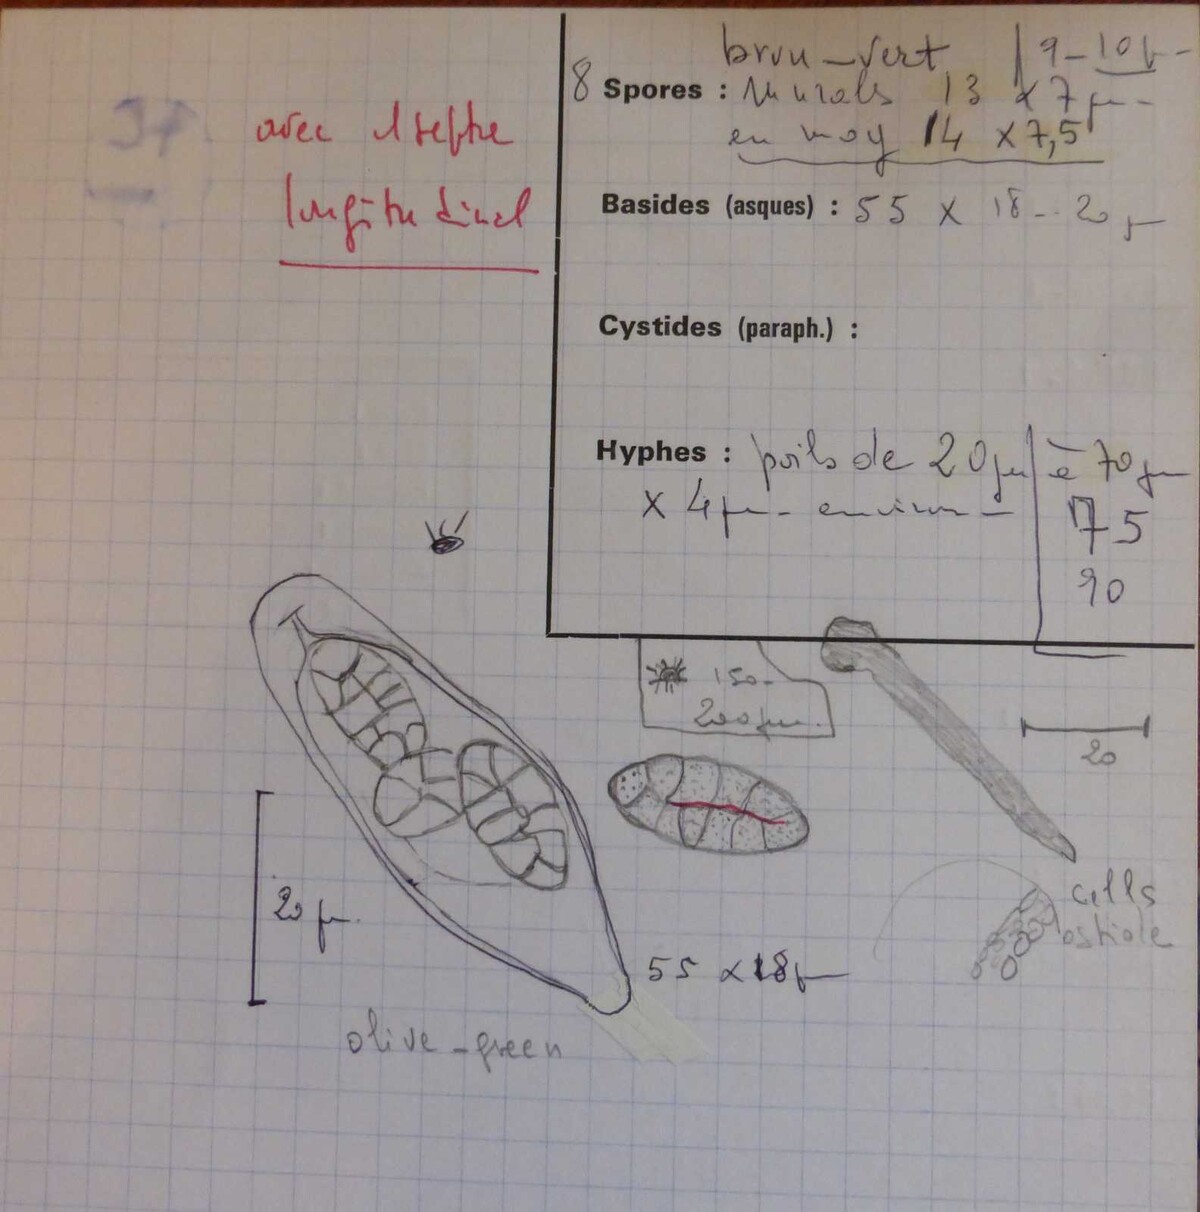 37
avec 1 septe
longitudinal
brun-vert 9-10µ
8 Spores : Murales 13 x 7 µ
en moy 14 x 7,5
Basides (asques) : 55 x 18-20 µ
Cystides (paraph.) :
Hyphes : poils de 20 µm à 70 µm
x 4 µ environ
75
90
150-
200 µm
20
20 µ
cells
ostiole
55 x 18 µ
olive-green